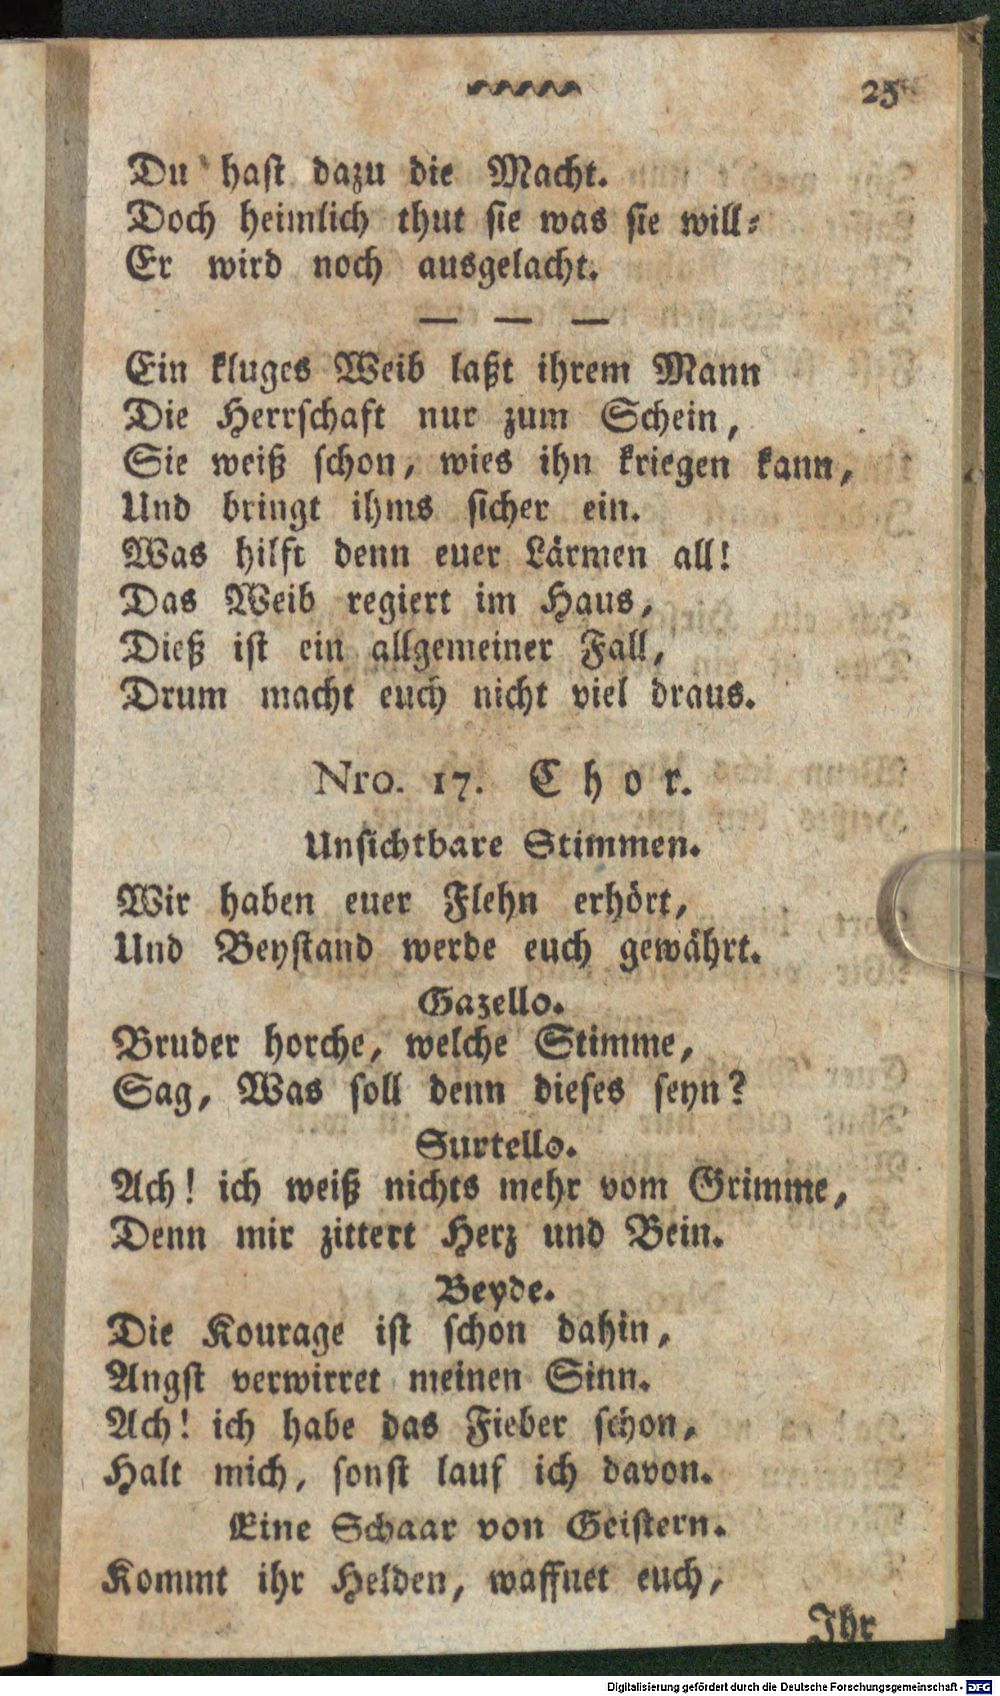 25
Du hast dazu die Macht.
Doch heimlich thut sie was sie will:
Er wird noch ausgelacht.
— — —
Ein kluges Weib laßt ihrem Mann
Die Herrschaft nur zum Schein,
Sie weiß schon, wies ihn kriegen kann,
Und bringt ihms sicher ein.
Was hilft denn euer Lärmen all!
Das Weib regiert im Haus,
Dieß ist ein allgemeiner Fall,
Drum macht euch nicht viel draus.
Nro. 17. Chor.
Unsichtbare Stimmen.
Wir haben euer Flehn erhört,
Und Beystand werde euch gewährt.
Gazello.
Bruder horche, welche Stimme,
Sag, Was soll denn dieses seyn?
Surtello.
Ach! ich weiß nichts mehr vom Grimme,
Denn mir zittert Herz und Bein.
Beyde.
Die Kourage ist schon dahin,
Angst verwirret meinen Sinn.
Ach! ich habe das Fieber schon,
Halt mich, sonst lauf ich davon.
Eine Schaar von Geistern.
Kommt ihr Helden, waffnet euch,
Ihr
Digitalisierung gefördert durch die Deutsche Forschungsgemeinschaft - DFG